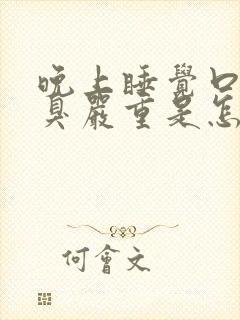 晚上睡覺口
臭嚴重是怎
何會文